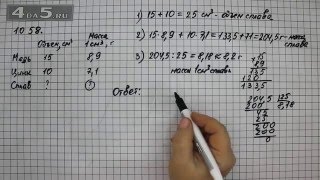 4ads.ru
1058.
Объем, см³ Масса 1 см³, г.
Медь 15 8,9
Цинк 10 7,1
Сплав ? ?
1) 15+10=25 см³ - объем сплава
2) 15·8,9+10·7,1=133,5+71=204,5 г - масса сплава
3) 204,5:25=8,18≈8,2 г
масса 1 см³ сплава
Ответ:
15
89
135
120
133,5
204,5 25
200 8,18
200
0